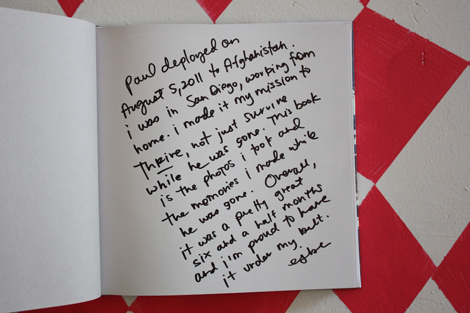 Paul deployed on
August 5, 2011 to Afghanistan.
i was in San Diego, working from
home. i made it my mission to
thrive, not just survive
while he was gone. This book
is the photos i took and
the memories i made while
he was gone. Overall,
it was a pretty great
six and a half months
and i'm proud to have
it under my belt.